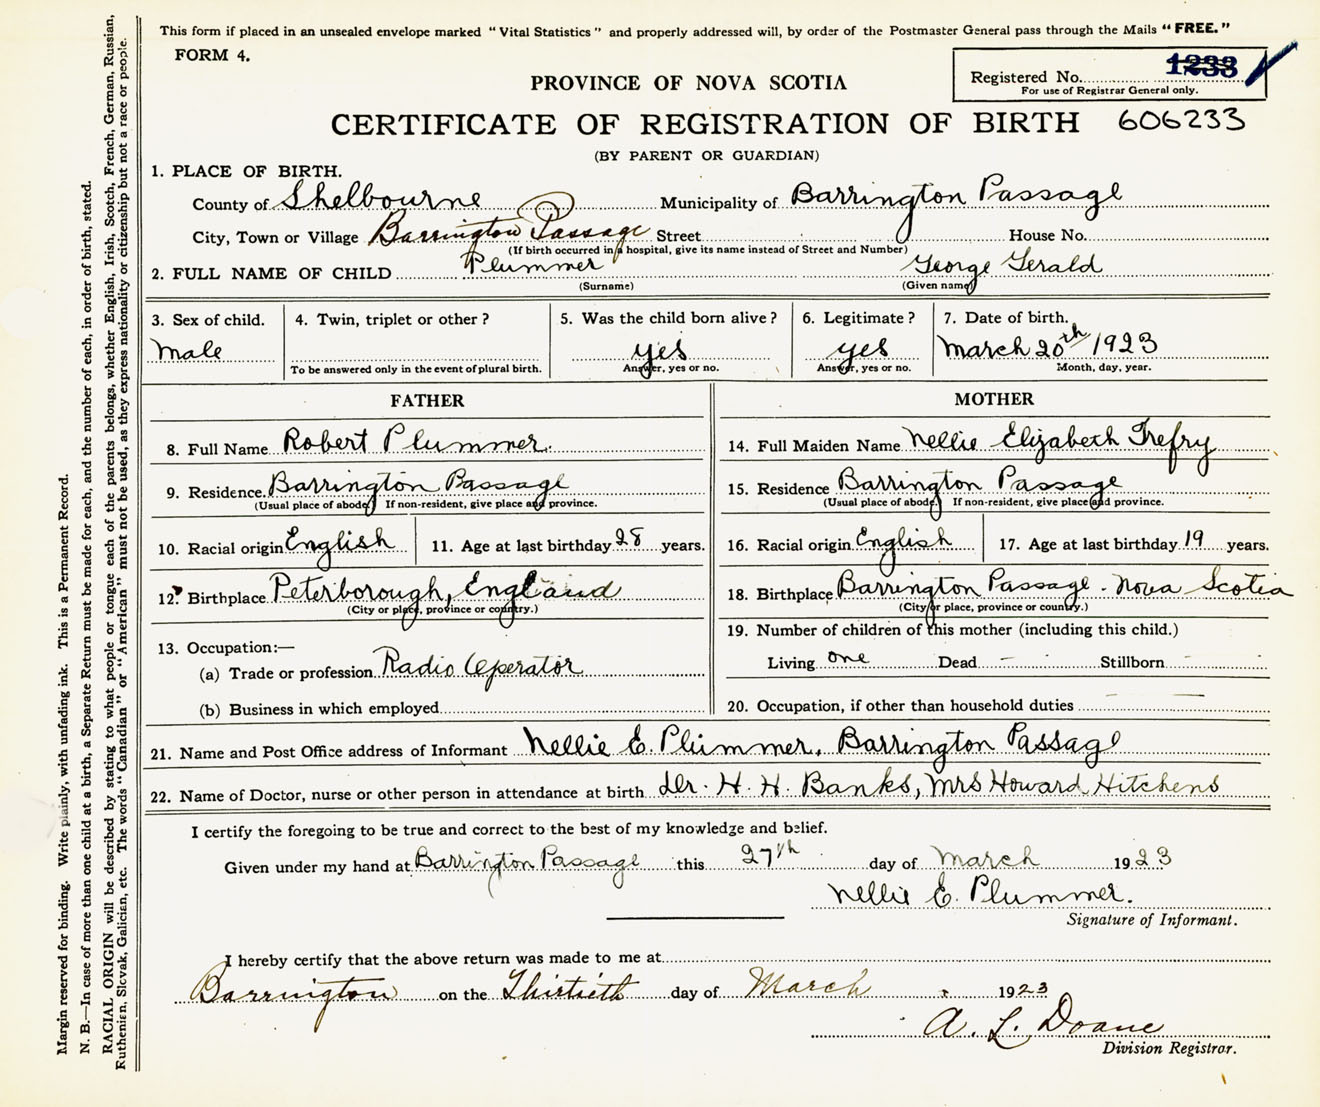 This form if placed in an unsealed envelope marked "Vital Statistics" and properly addressed will, by order of the Postmaster General pass through the Mails "FREE."
FORM 4.
Registered No. 1233
For use of Registrar General only.
PROVINCE OF NOVA SCOTIA
CERTIFICATE OF REGISTRATION OF BIRTH 606233
(BY PARENT OR GUARDIAN)
1. PLACE OF BIRTH.
County of Shelbourne Municipality of Barrington Passage
City, Town or Village Barrington Passage Street House No.
(If birth occurred in a hospital, give its name instead of Street and Number)
2. FULL NAME OF CHILD Plummer George Gerald
(Surname) (Given name)
3. Sex of child. 4. Twin, triplet or other? 5. Was the child born alive? 6. Legitimate? 7. Date of birth.
Male yes yes March 20th 1923
To be answered only in the event of plural birth. Answer, yes or no. Answer, yes or no. Month, day, year.
FATHER MOTHER
8. Full Name Robert Plummer. 14. Full Maiden Name Nellie Elizabeth Trefry
9. Residence. Barrington Passage 15. Residence Barrington Passage
(Usual place of abode) If non-resident, give place and province. (Usual place of abode.) If non-resident, give place and province.
10. Racial origin English 11. Age at last birthday 28 years. 16. Racial origin English 17. Age at last birthday 19 years.
12. Birthplace Peterborough, England 18. Birthplace Barrington Passage - Nova Scotia
(City or place, province or country.) (City or place, province or country.)
13. Occupation:— 19. Number of children of this mother (including this child.)
(a) Trade or profession Radio Operator Living one Dead - Stillborn
(b) Business in which employed 20. Occupation, if other than household duties
21. Name and Post Office address of Informant Nellie E. Plummer, Barrington Passage
22. Name of Doctor, nurse or other person in attendance at birth Dr. H. H. Banks, Mrs Howard Hitchens
I certify the foregoing to be true and correct to the best of my knowledge and belief.
Given under my hand at Barrington Passage this 27th day of March 1923
Nellie E. Plummer.
Signature of Informant.
I hereby certify that the above return was made to me at
Barrington on the Thirtieth day of March 1923
A. L. Doane
Division Registrar.
Margin reserved for binding. Write plainly, with unfading ink. This is a Permanent Record.
N. B.—In case of more than one child at a birth, a Separate Return must be made for each, and the number of each, in order of birth, stated.
RACIAL ORIGIN will be described by stating to what people or tongue each of the parents belongs, whether English, Irish, Scotch, French, German, Russian,
Ruthenian, Slovak, Galician, etc. The words "Canadian" or "American" must not be used, as they express nationality or citizenship but not a race or people.